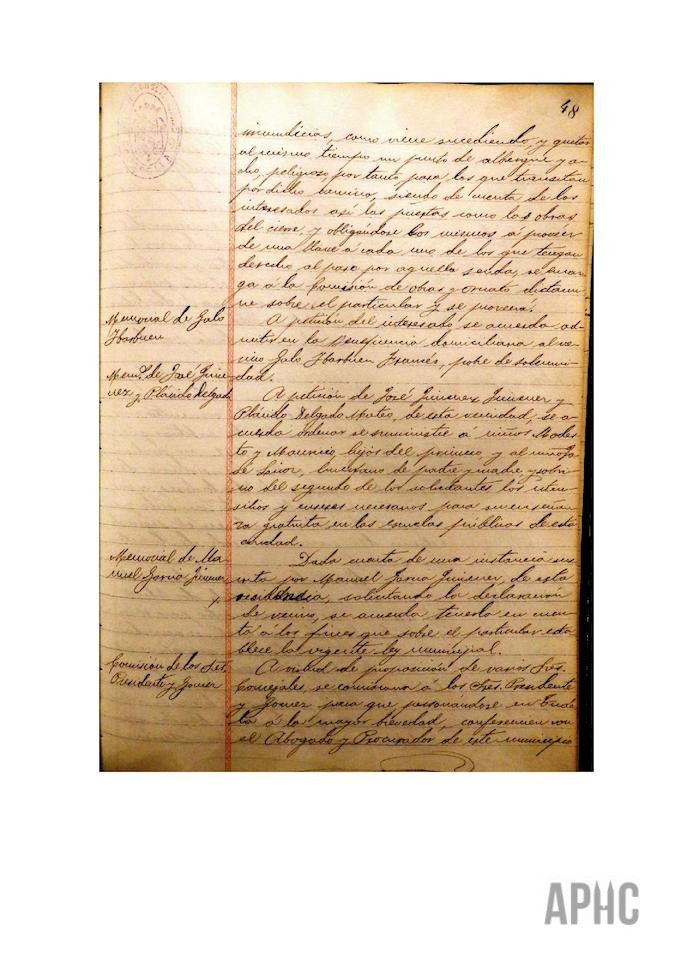 48
inmundicias, como viene sucediendo, y quitar
al mismo tiempo un punto de albergue y a-
cho, peligroso por tanto para los que transitan
por dicho termino, siendo de cuenta de los
interesados asi las puertas como las obras
del cierre, y obligandose los mismos á proveer
de una llave á cada uno de los que tengan
derecho al paso por aquella senda, se encar
ga á la Comisión de obras y ornato dictami
ne sobre el particular y se proveerá.
Memorial de Galo
Ibarbuen
A petición del interesado, se acuerda ad-
mitir en la Beneficencia domiciliaria al ve-
cino Galo Ibarbuen Francés, pobre de solemni-
dad.
Memˡ. de José Jimé-
nez y Plácido Delgado
A petición de José Jimenez Jimenez y
Plácido Delgado Mateo, de esta vecindad, se a-
cuerda ordenar se suministre á niños Modes-
to y Mauricio, hijos del primero, y al niño Jo-
sé huerfano de padre y madre y sobri-
no del segundo de los solicitantes los uten-
silios y enseres necesarios para su enseñan-
za gratuita en las escuelas públicas de esta
ciudad.
Memorial de Ma-
nuel Garcia Jimenez
Dada cuenta de una instancia sus-
crita por Manuel Garcia Jimenez, de esta
residencia, solicitando la declaración
de vecino, se acuerda tenerlo en cuen-
ta á los fines que sobre el particular esta-
blece la vigente ley municipal.
Comisión de los Sres.
Presidente y Gomez
A virtud de proposición de varios Sres.
Concejales, se comisiona á los Sres. Presidente
y Gomez para que personándose en Tude-
la á la mayor brevedad, conferencien con
el Abogado y Procurador de este municipio
APHC